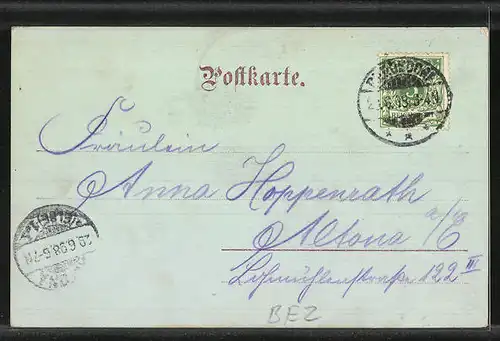 Postkarte.
Fräulein
Anna Hoppenrath
Altona a/E
Lohmühlenstraße 122 III
29.6.98.6-7N
(ELBE)
BEZ